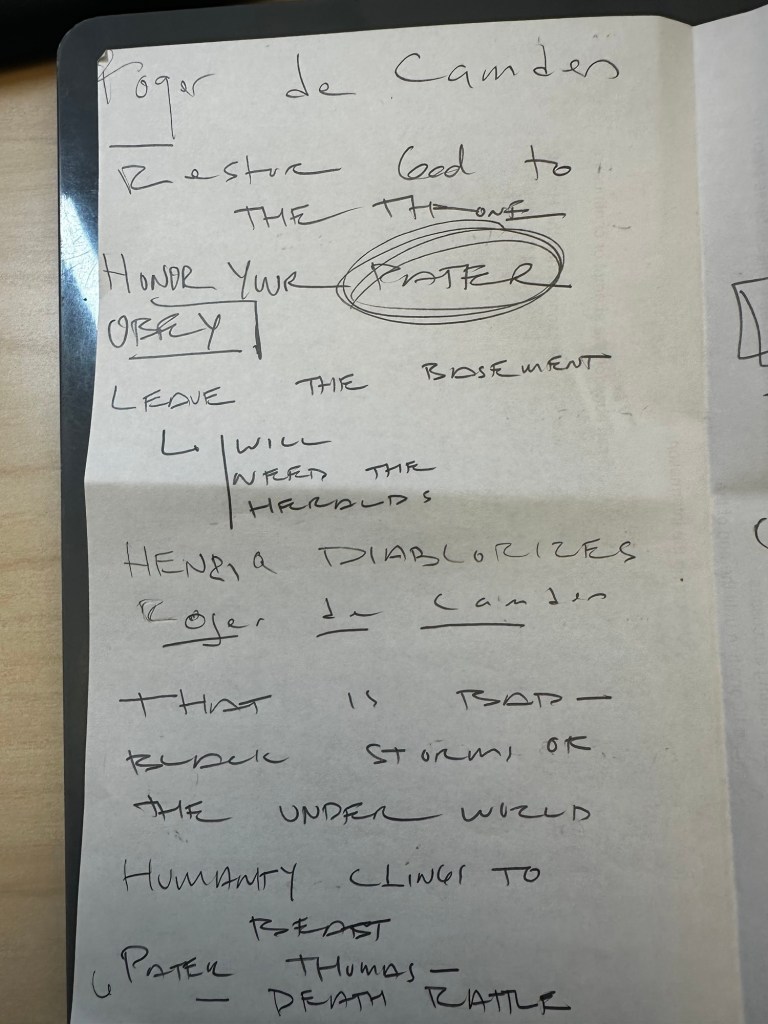 Roger de Camden
Restore God to
THE THRONE
HONOR YOUR PATER
OBEY
LEAVE THE BASEMENT
↳ WILL
NEED THE
HERALDS
DIABLORIZES
Roger de Camden
THAT IS BAD —
BLACK STORMS OK
THE UNDERWORLD
HUMANITY CLINGS TO
BEAST
↳ PATER THOMAS —
— DEATH RATTLE